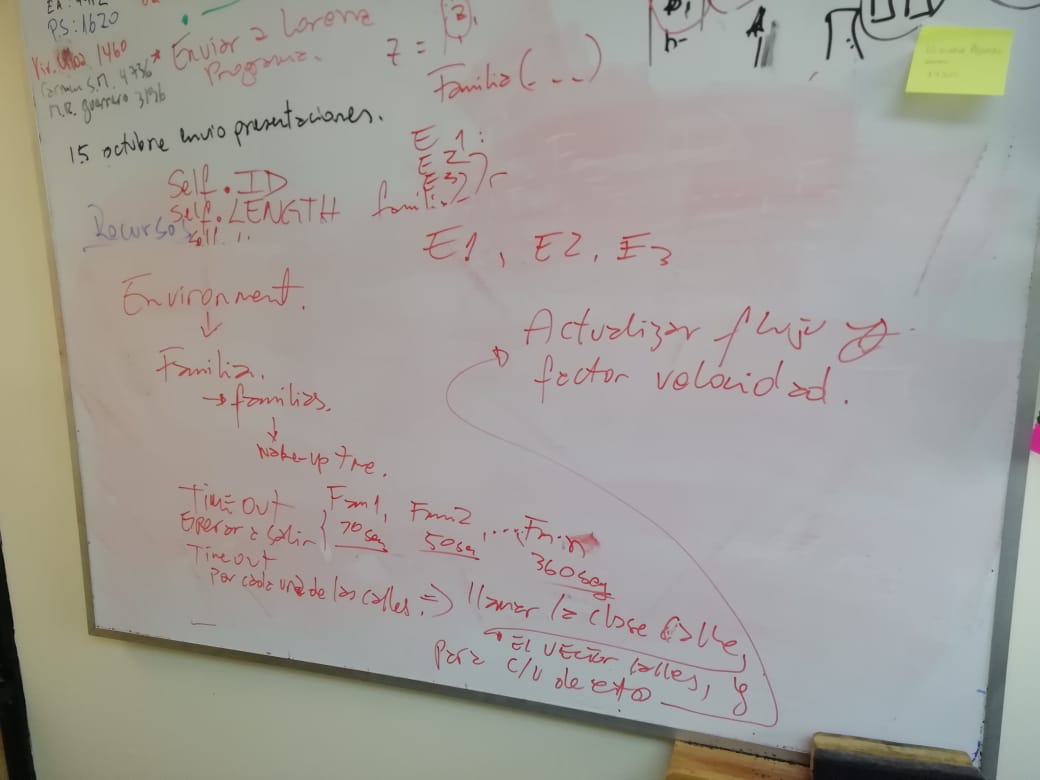 P.S: 1620
1460
Carmen S.M. 4736
M.R. guerrero 3196
* Enviar a Lorena
Programa.
7 =
Familia (...)
15 octubre envio presentaciones.
E1:
E2
E3
familia
Self.ID
Self.LENGTH
Self..
Recursos
E1, E2, E3
Environment.
↓
Familia.
→ familias.
↓
Wake-up Tre.
Actualizar flujo y
factor velocidad.
Time Out
Esperar a salir
Time Out
Fam1, Fam2, ... Fm.n
70seg 50seg 360seg
Por cada una de las calles. => llamar la clase Calle,
El vector calles, y
Para c/u de esto